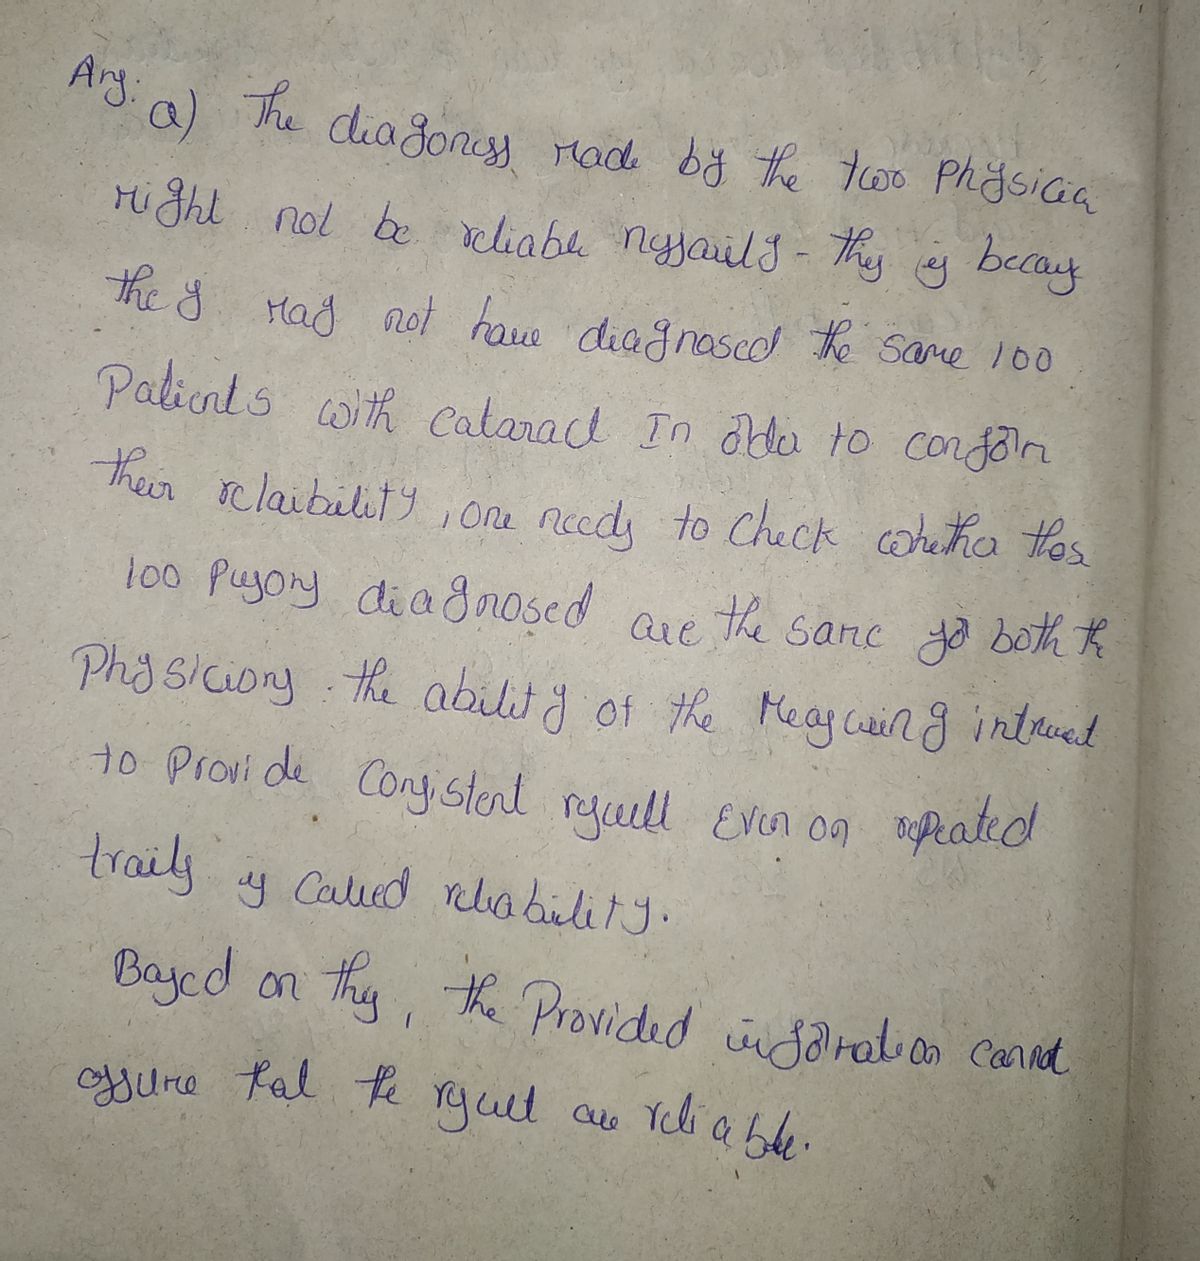 Ans:
a) The diagoness made by the two Physician
might not be reliable nessarily - this is becaus
they may not have diagnosed the same 100
Patients with cataract In order to conform
their relaibility, one needs to check whether thos
100 Persons diagnosed are the same for both the
Physicions. the ability of the Measuring
to Provide Consistent result Even on repeated
trails is Called reliability.
Based on this, the Provided information cannot
assure that the result are reliable.